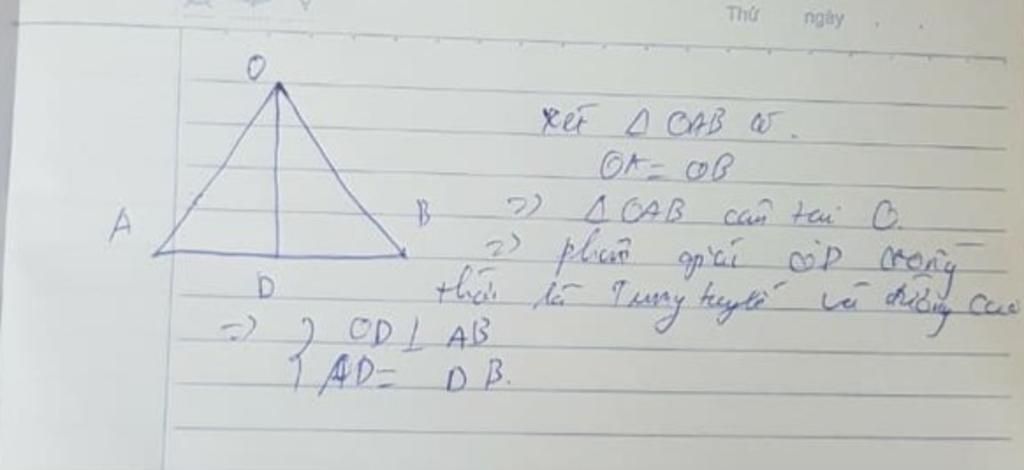 Thứ ngày
O
Xét Δ OAB có.
OA = OB
A
B
=> Δ OAB cân tại O.
=> phân giác OD đồng
D
thời là Trung tuyến và đường cao
=> { OD ⊥ AB
AD = DB.